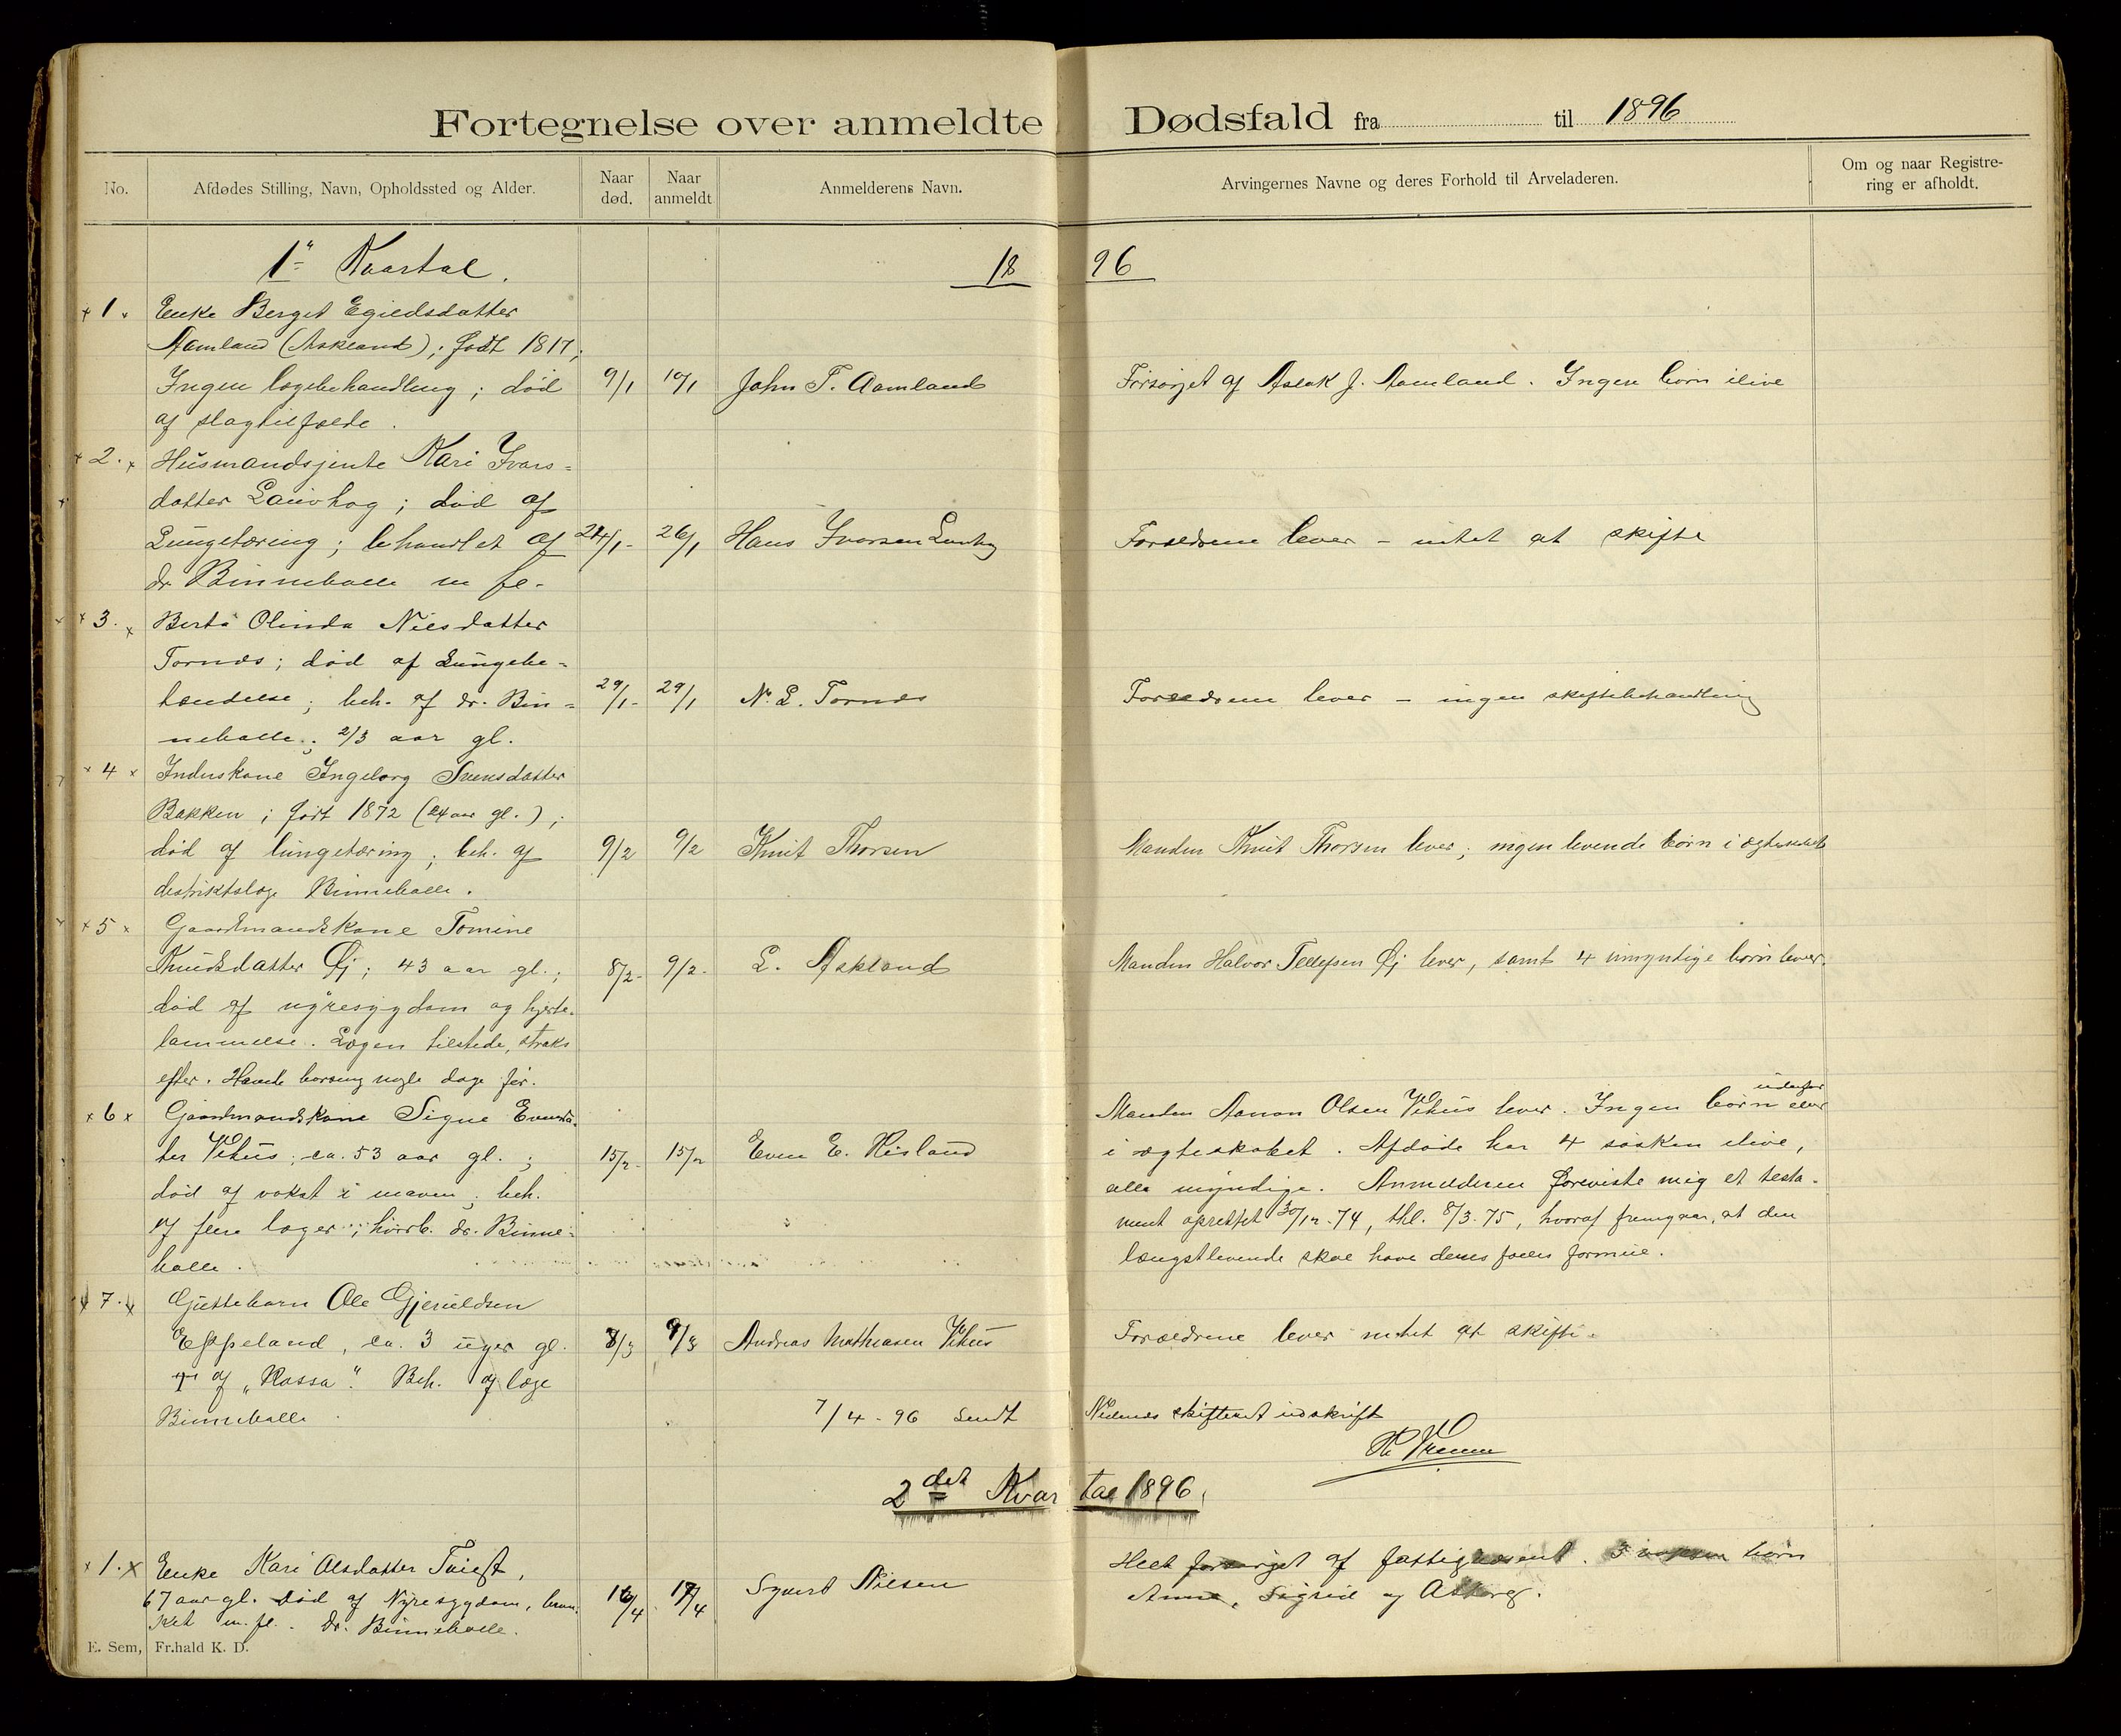 Fortegnelse over anmeldte Dødsfald fra til 1896
No.
Afdødes Stilling, Navn, Opholdssted og Alder.
Naar død.
Naar anmeldt
Anmelderens Navn.
Arvingernes Navne og deres Forhold til Arveladeren.
Om og naar Registre-
ring er afholdt.
1ste Kvartal. 1896
1. Enke Berget Egieldsdatter
Aamland (Askland); født 1817;
Ingen lægebehandling; død 9/1 10/1 John T. Aamland Forsørget af Aslak J. Aamland. Ingen børn ilive
af slagtilfælde.
2. Husmandsjente Kari Ivars-
datter Lauvhog; død af
Lungetæring; behandlet af 24/1 - 26/1 Hans Ivarsen Forældrene lever - intet at skifte
dr Binneballe m fl.
3. Berta Olinda Nilsdatter
Tornes; død af Lungebe-
tændelse; beh. af dr. Bin- 29/1 - 29/1 N. L. Tornes Forældrene lever - ingen skiftebehandling
neballe; 2/3 aar gl.
4 Inderskone Ingeborg Svensdatter
Bakken; født 1872 (24 aar gl.);
død af lungetæring; beh. af 9/2 9/2 Knut Thorsen Manden Knut Thorsen lever; ingen levende børn i ægteskabet
destriktslæge Binneballe.
5 Gaardmandskone Tomine
Knudsdatter Øj; 43 aar gl.; 8/2 - 9/2 - L. Askland Manden Halvor Tellefsen Øj lever, samt 4 umyndige børn lever.
død af nyresygdom og hjerte-
lammelse. Lægen tilstede, straks
efter. Havde barseng nogle dage før.
6 Gaardmandskone Signe Evensda- Manden Aanon Olsen Vehus lever. Ingen børn udenfor eller
ter Vehus; ca. 53 aar gl.; 15/2 - 15/2 Even E. Hisland i ægteskabet. Afdøde har 4 søsken ilive,
død af vækst i maven; beh. alle myndige. Anmelderen foreviste mig et testa-
af flere læger; hvorb. dr. Binne- ment oprettet 30/12 - 74, thl. 8/3 - 75, hvoraf fremgaar, at den
balle. længstlevende skal have deres fælles formue.
7. Guttebarn Ole Gjeruldsen
Eppeland, ca. 3 uger gl. 8/3 9/3 Andreas Mathiasen Vehus Forældrene lever intet at skifte.
† af "Rossa". Beh. af læge
Binneballe. 7/4 - 96 Sendt Nedenes skifteret udskrift
2det Kvartal 1896.
1. Enke Kari Olsdatter Tveit, Helt forsørget af fattigvæsent. 3 voksen børn
67 aar gl. død af Nyresygdom, brun- 16/4 17/4 Syvert Nilsen Anne, Sigrid og Asborg.
ket m. fl. dr. Binneballe.
E. Sem, Fr.hald K. D.